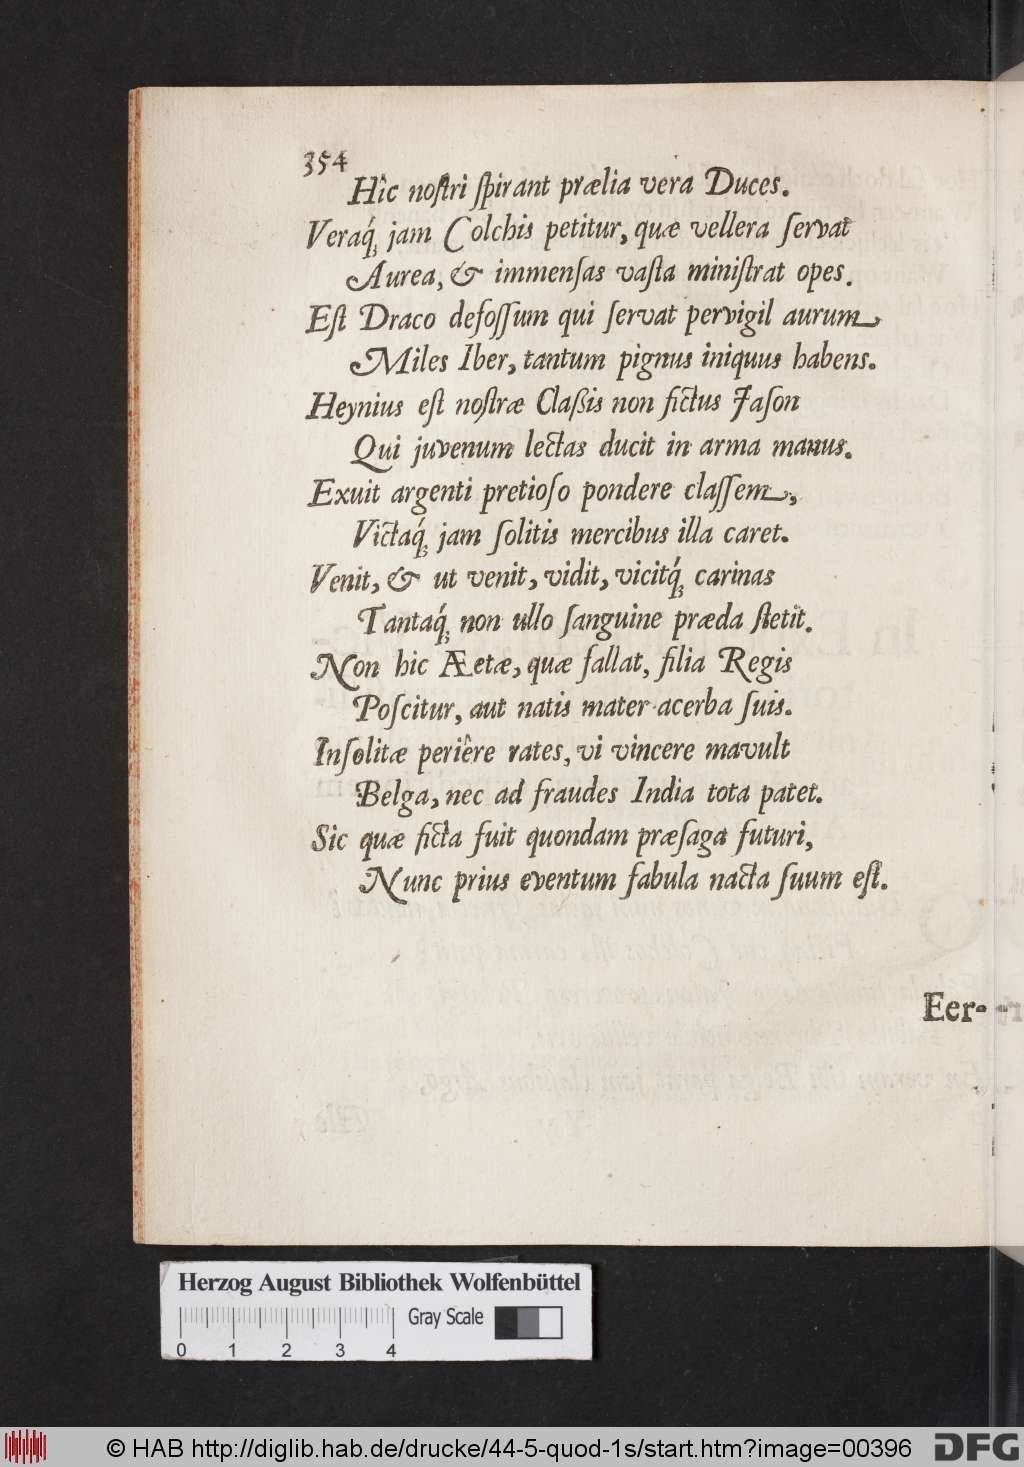 354
Hîc noſtri ſpirant prælia vera Duces.
Veraq́ꝫ jam Colchis petitur, quæ vellera ſervat
Aurea, & immenſas vaſta miniſtrat opes.
Eſt Draco defoſſum qui ſervat pervigil aurum
Miles Iber, tantum pignus iniquus habens.
Heynius eſt noſtræ Claßis non fictus Jaſon
Qui juvenum lectas ducit in arma manus.
Exuit argenti pretioſo pondere claſſem,
Victaq́ꝫ jam ſolitis mercibus illa caret.
Venit, & ut venit, vidit, vicitq́ꝫ carinas
Tantaq́ꝫ non ullo ſanguine præda ſtetit.
Non hic Æetæ, quæ fallat, filia Regis
Poſcitur, aut natis mater acerba ſuis.
Inſolitæ periêre rates, vi vincere mavult
Belga, nec ad fraudes India tota patet.
Sic quæ ficta fuit quondam præſaga futuri,
Nunc prius eventum fabula nacta ſuum eſt.
Eer-
Herzog August Bibliothek Wolfenbüttel
Gray Scale
0 1 2 3 4
© HAB http://diglib.hab.de/drucke/44-5-quod-1s/start.htm?image=00396
DFG